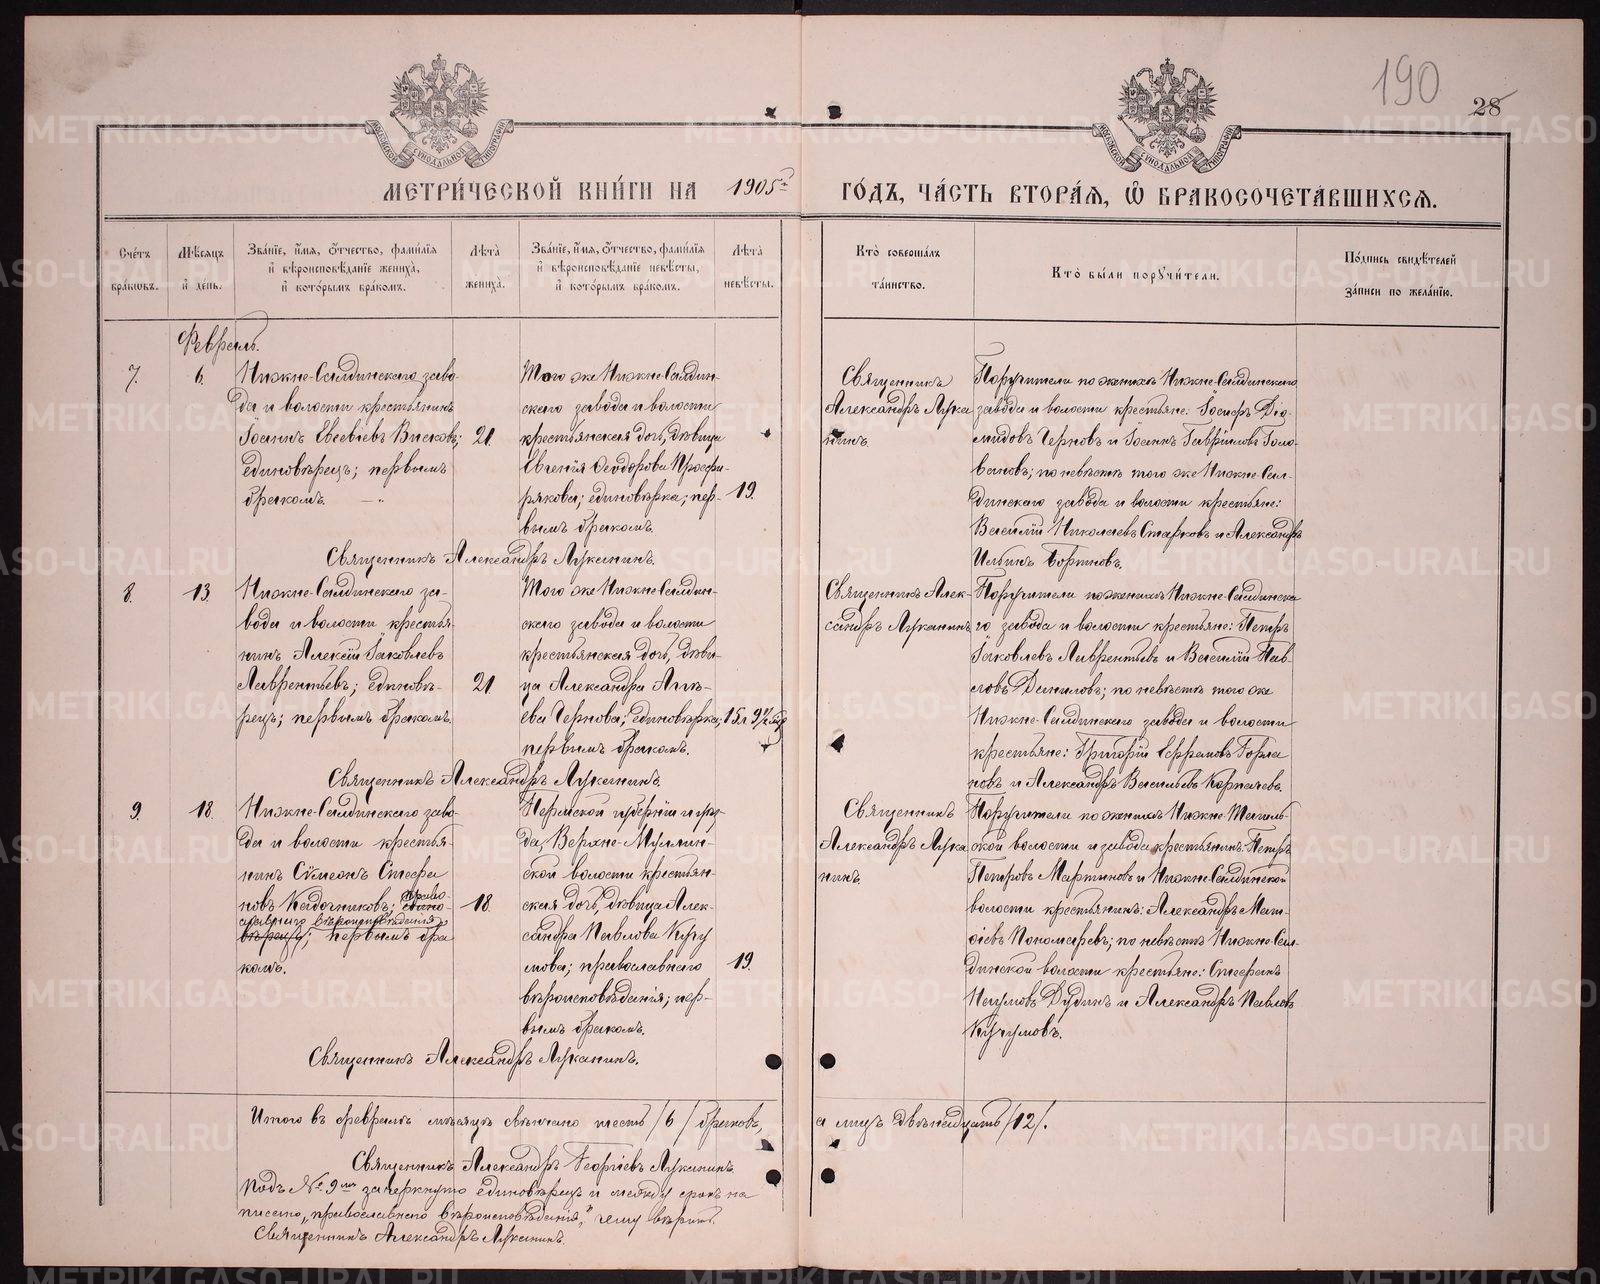 190
28
МОСКОВСКОЙ СѴНОДАЛЬНОЙ ТИПОГРАФІИ
МОСКОВСКОЙ СѴНОДАЛЬНОЙ ТИПОГРАФІИ
МЕТРИ́ЧЕСКОЙ КНИ́ГИ НА 1905 ГО́ДЪ, ЧА́СТЬ ВТОРА́Ѧ, Ѡ БРАКОСОЧЕТА́ВШИХСѦ.
Сче́тъ бра́кѡвъ.
Мѣ́сѧцъ и де́нь.
Зва́нїе, и́мѧ, ѻ́тчество, фами́лїѧ и вѣроисповѣ́данїе жениха̀, и кото́рымъ бра́комъ.
Лѣ́та жениха̀.
Зва́нїе, и́мѧ, ѻ́тчество, фами́лїѧ и вѣроисповѣ́данїе невѣ́сты, и кото́рымъ бра́комъ.
Лѣ́та невѣ́сты.
Кто̀ соверша́лъ та́инство.
Кто̀ бы́ли порꙋчи́тели.
По́дпись свидѣ́телей за́писи по жела́нїю.
Февраль.
7.
6.
Нижне-Салдинскаго заво-
да и волости крестьянинъ
Іоаннъ Евсевіевъ Висковъ;
единовѣрецъ; первымъ
бракомъ.
21.
Того же Нижне-Салдин-
скаго завода и волости
крестьянская дочь, дѣвица
Евгенія Ѳеодорова Просфи-
рякова; единовѣрка; пер-
вымъ бракомъ.
19.
Священникъ
Александръ Лука
нинъ.
Поручители по женихѣ Нижне-Салдинскаго
завода и волости крестьяне: Іосифъ Діо-
мидовъ Черновъ и Іоаннъ Гавріиловъ Голо-
вановъ; по невѣстѣ того же Нижне-Сал-
динскаго завода и волости крестьяне:
Василій Николаевъ Старковъ и Александръ
Ильинъ
Священникъ Александръ Луканинъ.
8.
13.
Нижне-Салдинскаго за-
вода и волости крестья-
нинъ Алексій Іаковлевъ
Лаврентьевъ; единовѣ-
рецъ; первымъ бракомъ.
21
Того же Нижне-Салдин-
скаго завода и волости
крестьянская дочь, дѣви-
ца Александра Аникі-
ева Чернова; единовѣрка;
первымъ бракомъ.
15 л 9½
Священникъ Алек-
сандръ Луканинъ
Поручители по женихѣ Нижне-Салдинска
го завода и волости крестьяне: Петръ
Іаковлевъ Лаврентьевъ и Василій Пав-
ловъ Даниловъ; по невѣстѣ того же
Нижне-Салдинскаго завода и волости
крестьяне: Григорій Ефремовъ Горла
новъ и Александръ Васильевъ Корпачевъ.
Священникъ Александръ Луканинъ.
9.
18.
Нижне-Салдинскаго заво-
да и волости крестья-
нинъ Сѵмеонъ Стефа
новъ Кадочниковъ; едино- право-
славнаго вѣроисповѣданія
вѣрецъ; первымъ бра
комъ.
18.
Пермской губерніи и уѣз-
да, Верхне-Муллин-
ской волости крестьян-
ская дочь, дѣвица Алек-
сандра Павлова Кучу
мова; православнаго
вѣроисповѣданія; пер-
вымъ бракомъ.
19.
Священникъ
Александръ Лука
нинъ.
Поручители по женихѣ Нижне-Тагиль-
ской волости и завода крестьянинъ: Петръ
Петровъ Мартиновъ и Нижне-Салдинской
волости крестьянинъ: Александръ Мат-
ѳіевъ Пономаревъ; по невѣстѣ Нижне-Сал-
динской волости крестьяне: Стефанъ
Наумовъ Дудинъ и Александръ Павловъ
Кучумовъ.
Священникъ Александръ Луканинъ.
Итого въ февралѣ мѣсяцѣ вѣнчано шесть /6/ браковъ, а лицъ двѣнадцать /12/.
Священникъ Александръ Георгіевъ Луканинъ
Подъ № 9мъ зачеркнуто единовѣрецъ и между строкъ на
писано „православнаго вѣроисповѣданія," чему вѣрить.
Священникъ Александръ Луканинъ.
METRIKI.GASO-URAL.RU